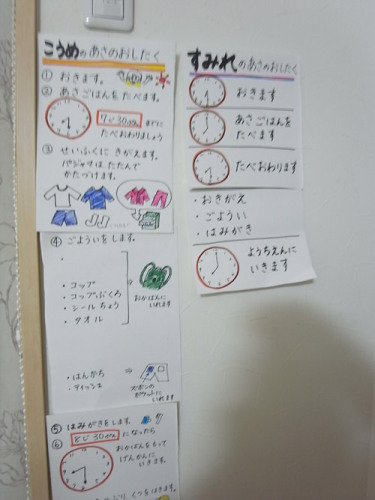 こうめのあさのおしたく
① おきます。
② あさごはんを たべます。
7じ30ぷん までに
たべおわりましょう
③ せいふくに きがえます。
パジャマは、たたんで
かたづけます。
④ ごようい をします。
・コップ
・コップぶくろ
・シールちょう
・タオル
おかばんに
いれます
・はんかち
・ティッシュ
ズボンの
ポケットに
いれます
⑤ はみがきをします。
⑥ 8じ30ぷん になったら
おかばんをもって
げんかんに
いきます。
くつをはきます。
すみれのあさのおしたく
おきます
あさごはんを
たべます
たべおわります
・おきがえ
・ごようい
・はみがき
ようちえんに
いきます